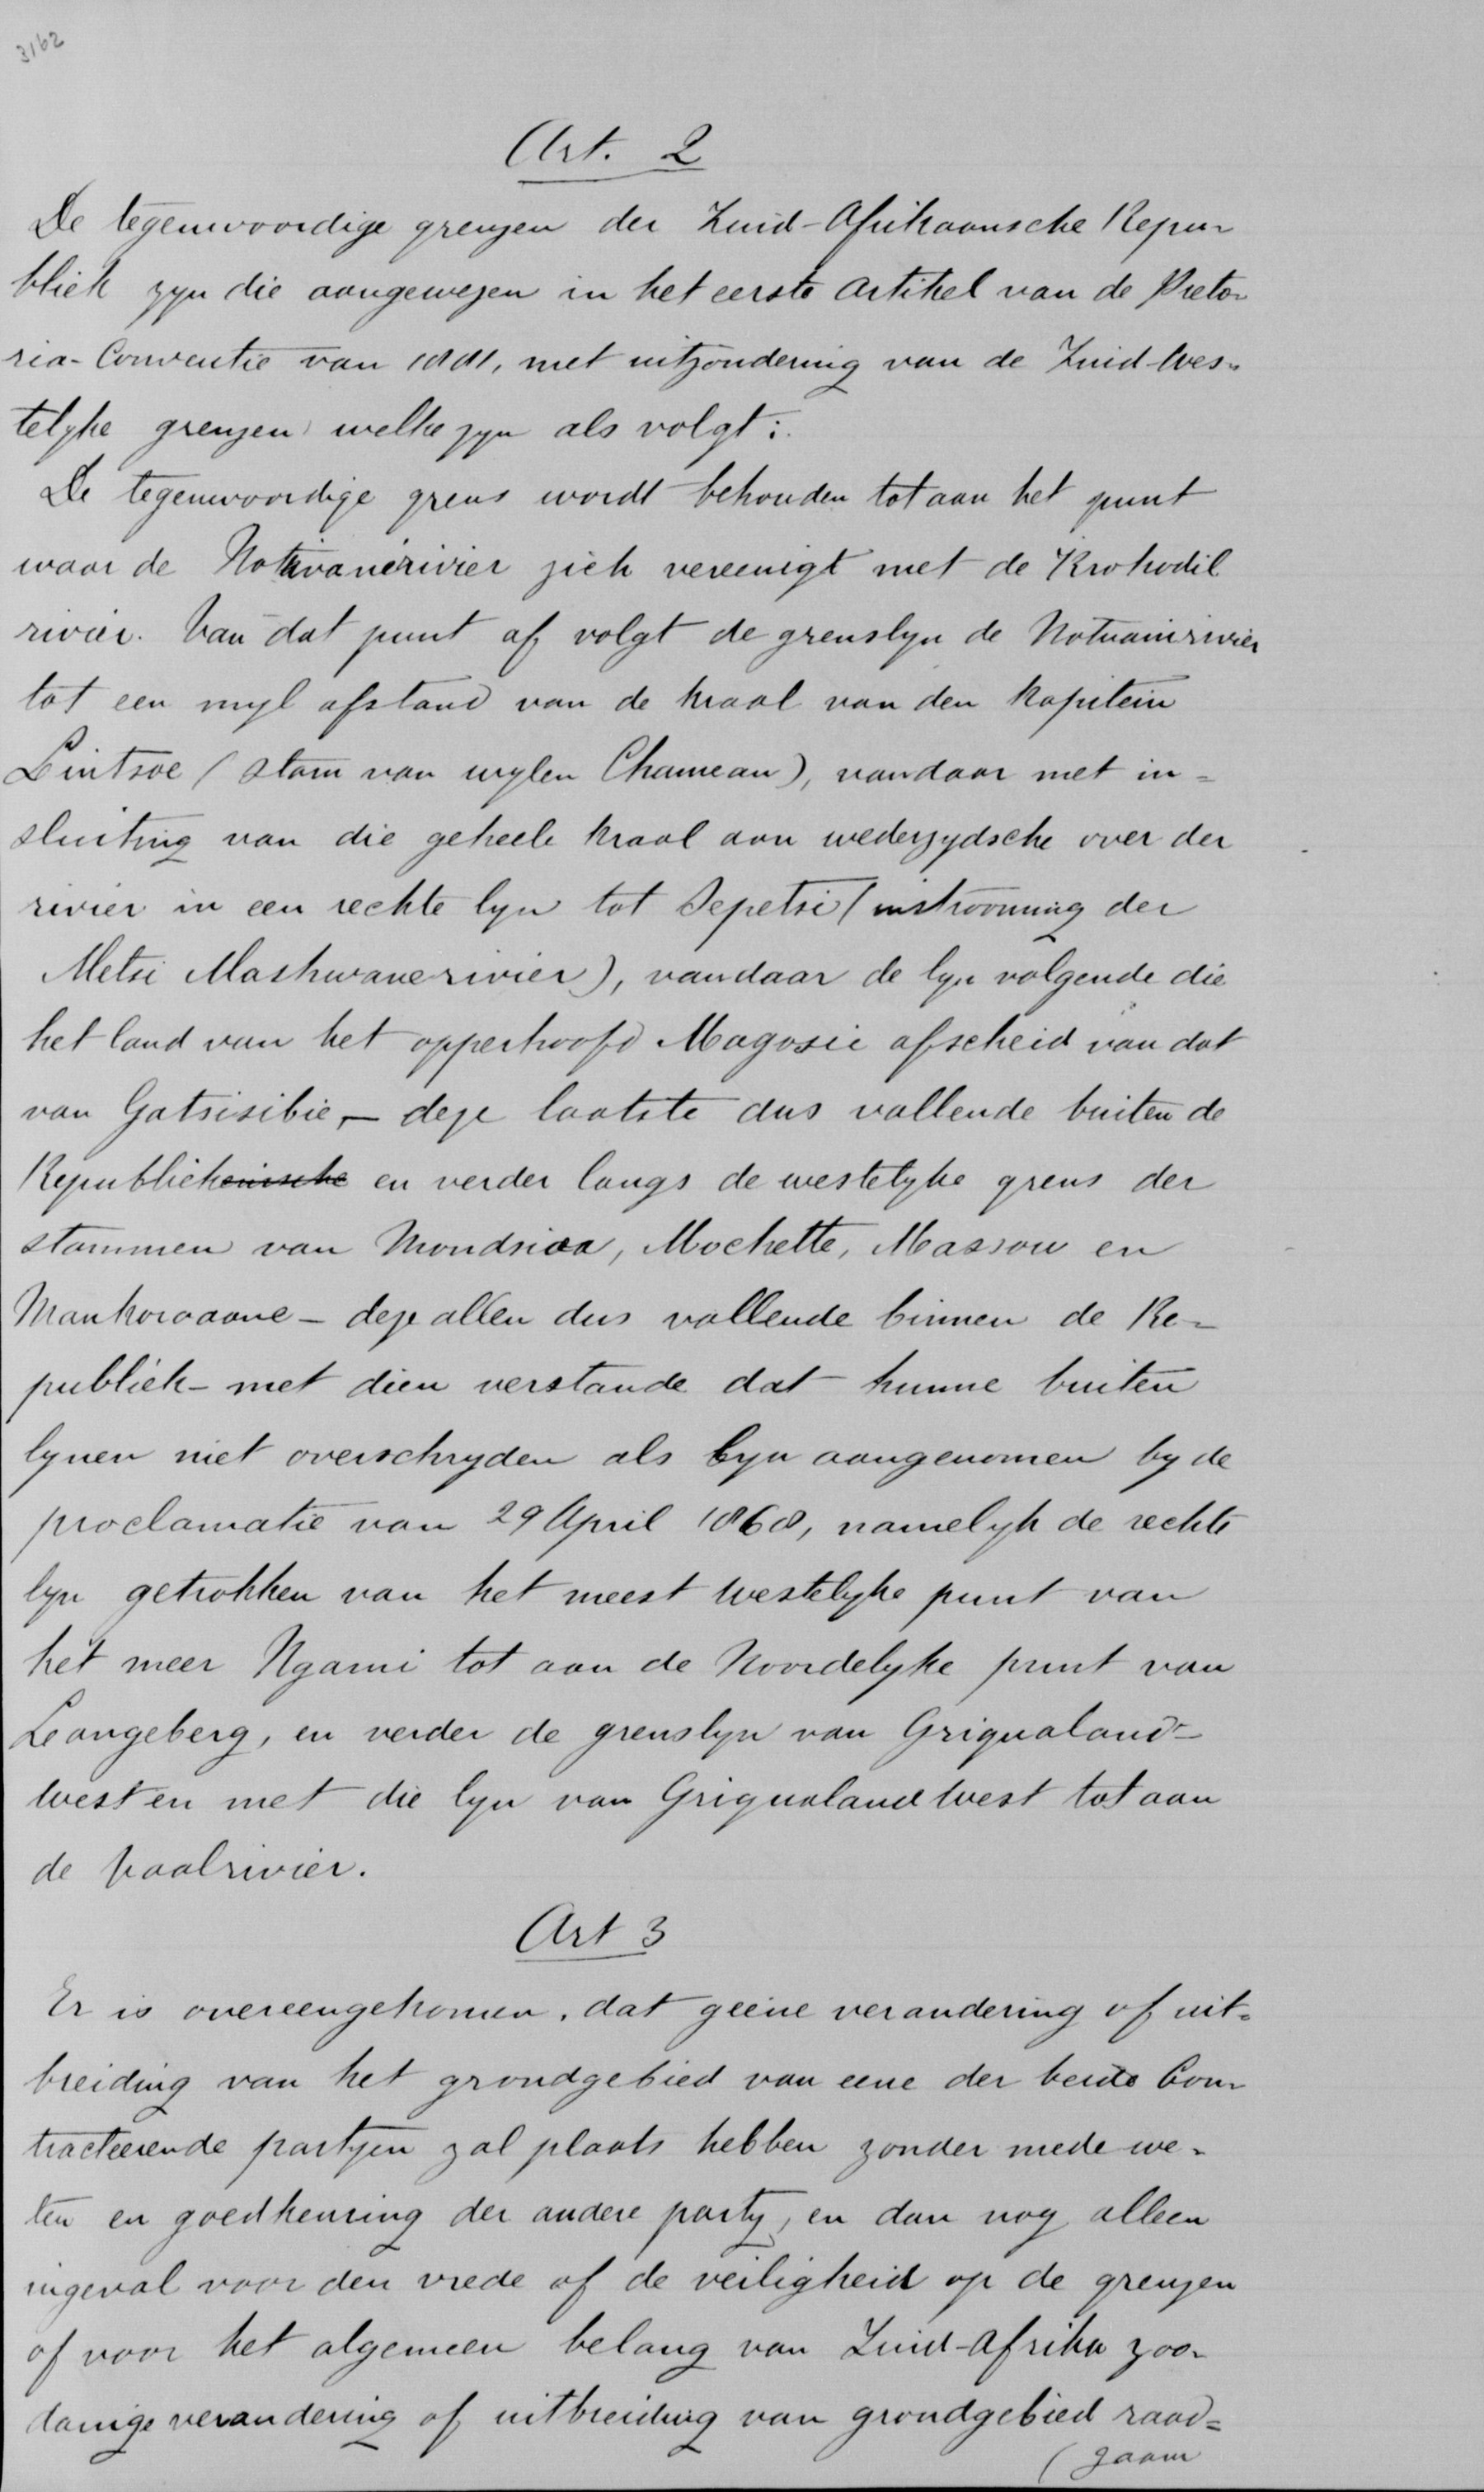 3162
Art. 2
De tegenwoordige grenzen der Zuid-Afrikaansche Repu-
bliek zyn die aangewezen in het eerste artikel van de Preto-
ria-Conventie van 1881, met uitzondering van de Zuid-Wes-
telyke grenzen welke zyn als volgt:
De tegenwoordige grens wordt behouden tot aan het punt
waar de Notwanerivier zich vereenigt met de Krokodil
rivier. Van dat punt af volgt de grenslyn de Notuanirivier
tot een myl afstand van de kraal van den Kapitein
Lintsoe (stam van wylen Chameau), vandaar met in-
sluiting van die geheele kraal aan wederzydsche oever der
rivier in een rechte lyn tot Sepetsi (instrooming der
Metsi Mashwane rivier), vandaar de lyn volgende die
het land van het opperhoofd Magosie afscheid van dat
van Gatsisibie, - deze laatste dus vallende buiten de
Republiekeinsche en verder langs de westelyke grens der
stammen van Mondsioa, Mochette, Massou en
Mankoroaane - deze allen dus vallende binnen de Re-
publiek - met dien verstande dat hunne buiten
lynen niet overschryden als lyn aangenomen by de
proclamatie van 29 April 1868, namelyk de rechte
lyn getrokken van het meest Westelyke punt van
het meer Ngami tot aan de Noordelyke punt van
Leangeberg, en verder de grenslyn van Griqualand-
West en met die lyn van Griqualand West tot aan
de Vaalrivier.
Art 3
Er is overeengekomen, dat geene verandering of uit-
breiding van het grondgebied van eene der beide Con-
tracteerende partyen zal plaats hebben zonder mede we-
ten en goedkeuring der andere party, en dan nog alleen
ingeval voor den vrede of de veiligheid op de grenzen
of voor het algemeen belang van Zuid-Afrika zoo-
danige verandering of uitbreiding van grondgebied raad-
(zaam